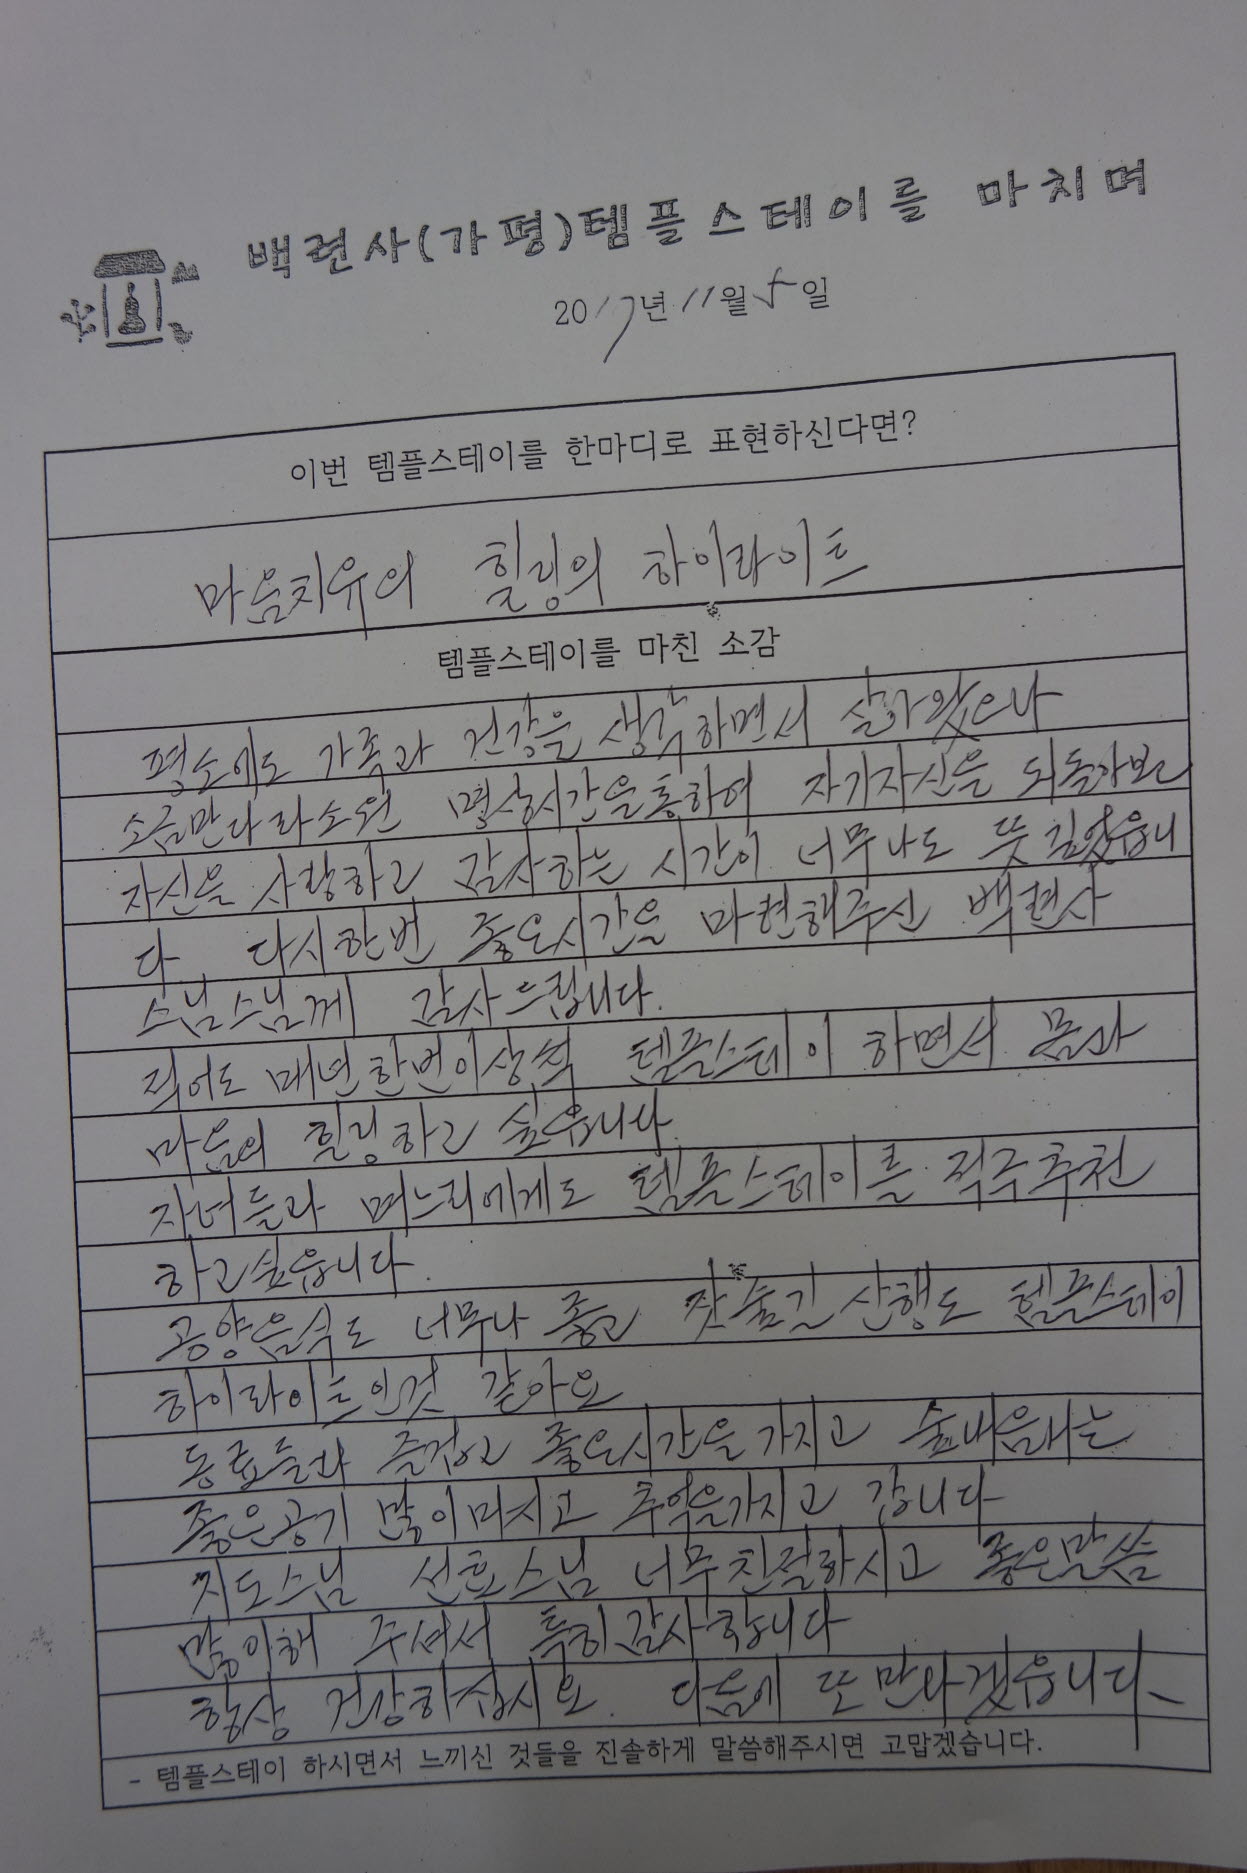 백련사(가평)템플스테이를 마치며
2017년 11월 5일
이번 템플스테이를 한마디로 표현하신다면?
마음치유의 힐링의 하이라이트
템플스테이를 마친 소감
평소에도 가족과 건강을 생각하면서 살아왔으나
소금만다라소원 명상시간을통하여 자기자신을 되돌아보고
자신을 사랑하고 감사하는 시간이 너무나도 뜻 깊었읍니
다. 다시한번 좋은시간을 마련해주신 백련사
스님스님께 감사드립니다.
적어도 매년한번이상씩 템플스테이 하면서 몸과
마음의 힐링하고 싶읍니다.
자녀들과 며느리에게도 템플스테이를 적극추천
하고싶읍니다.
공양음식도 너무나 좋고 잣숲길 산행도 템플스테이
하이라이트인것 같아요
동료들과 즐겁고 좋은시간을가지고 숲내음나는
좋은공기 많이마시고 추억을가지고 갑니다
지도스님 선효스님 너무친절하시고 좋은말씀
많이해 주셔서 특히감사합니다
항상 건강하십시요. 다음에 또 만나겠읍니다
- 템플스테이 하시면서 느끼신 것들을 진솔하게 말씀해주시면 고맙겠습니다.